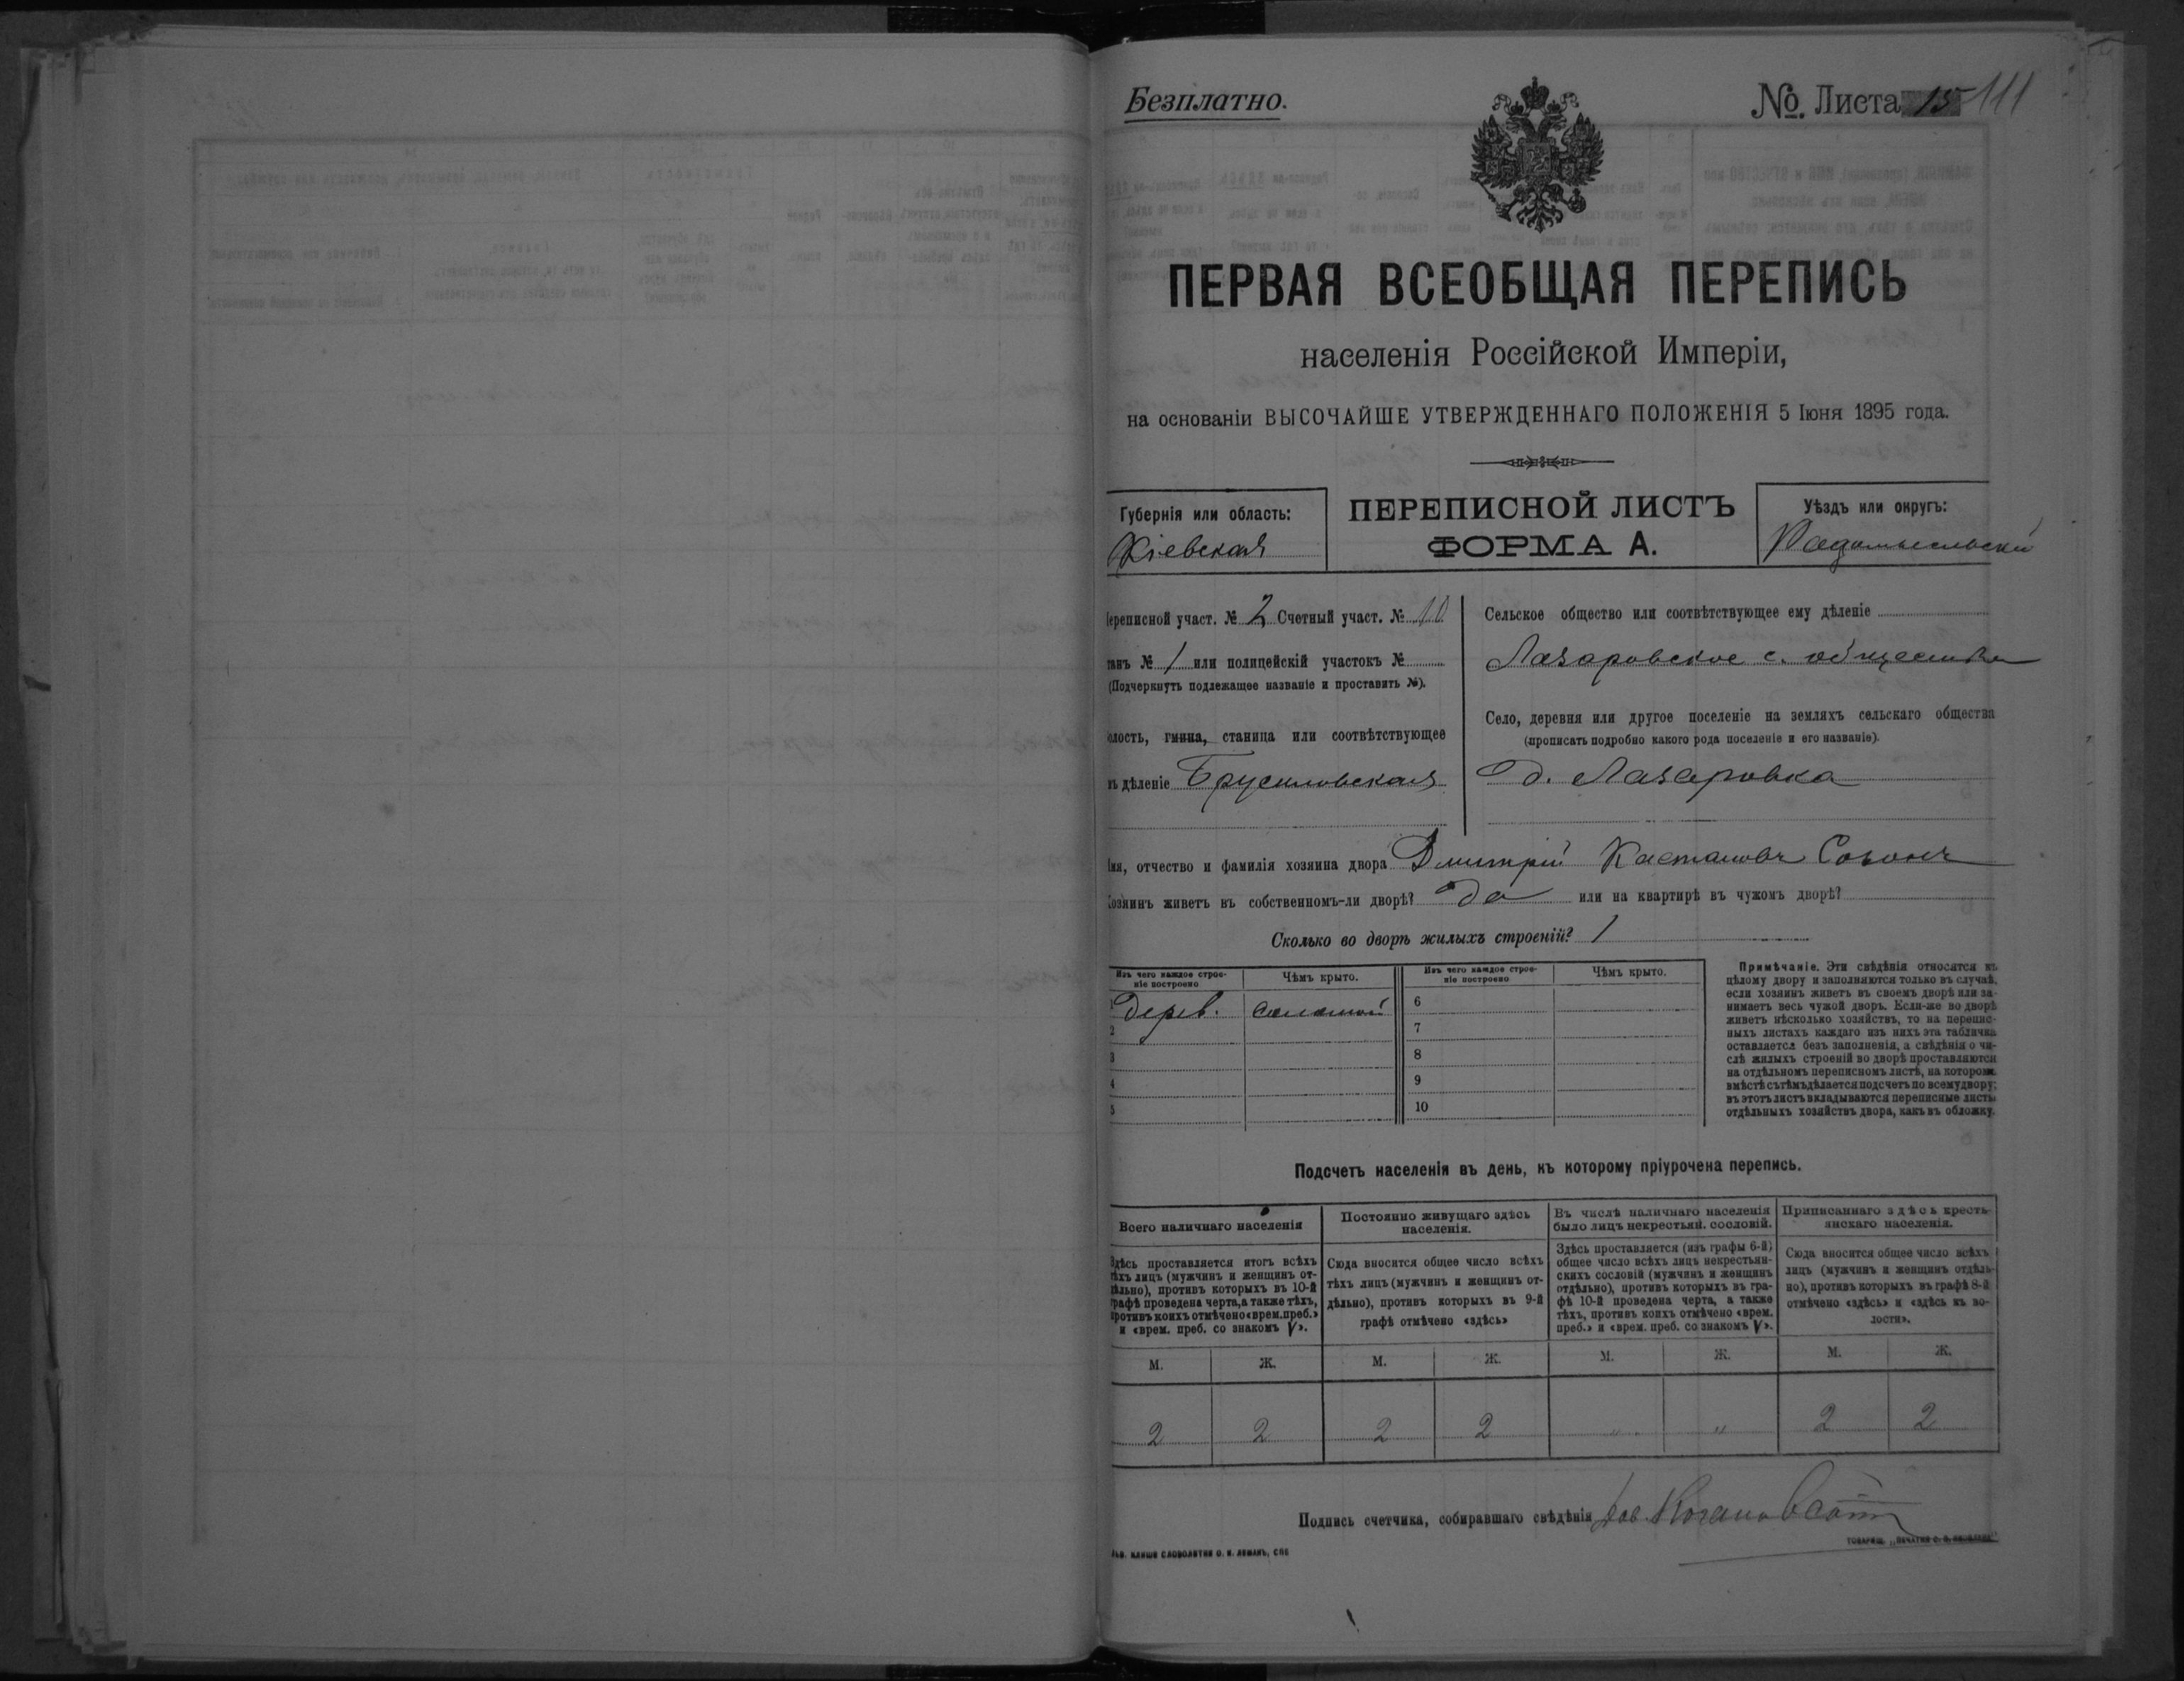 Безплатно.
№ Листа 15 111
ПЕРВАЯ ВСЕОБЩАЯ ПЕРЕПИСЬ
населенія Россійской Имперіи,
на основаніи ВЫСОЧАЙШЕ УТВЕРЖДЕННАГО ПОЛОЖЕНІЯ 5 Іюня 1895 года.
Губернія или область:
Кіевская
ПЕРЕПИСНОЙ ЛИСТЪ
ФОРМА А.
Уѣздъ или округъ:
Радомысльскій
ереписной участ. № 2 Счетный участ. № 10
танъ № 1 или полицейскій участокъ №
(Подчеркнуть подлежащее названіе и проставить №).
олость, гмина, станица или соотвѣтствующее
ъ дѣленіе Брусиловская
Сельское общество или соотвѣтствующее ему дѣленіе
Лазаровское с. общество
Село, деревня или другое поселеніе на земляхъ сельскаго общества
(прописать подробно какого рода поселеніе и его названіе).
д. Лазаровка
мя, отчество и фамилія хозяина двора Дмитрій
Хозяинъ живетъ въ собственномъ-ли дворѣ? да или на квартирѣ въ чужомъ дворѣ?
Сколько во дворѣ жилыхъ строеній? 1
Изъ чего каждое строе-
ніе построено
Чѣмъ крыто.
Изъ чего каждое строе-
ніе построено
Чѣмъ крыто.
1 дерев. соломой
2
3
4
5
6
7
8
9
10
Примѣчаніе. Эти свѣдѣнія относятся къ
цѣлому двору и заполняются только въ случаѣ,
если хозяинъ живетъ въ своемъ дворѣ или за-
нимаетъ весь чужой дворъ. Если-же во дворѣ
живетъ нѣсколько хозяйствъ, то на перепис-
ныхъ листахъ каждаго изъ нихъ эта табличка
оставляется безъ заполненія, а свѣдѣнія о чи-
слѣ жилыхъ строеній во дворѣ проставляются
на отдѣльномъ переписномъ листѣ, на которомъ
вмѣстѣ съ тѣмъ дѣлается подсчетъ по всему двору;
въ этотъ листъ вкладываются переписные листы
отдѣльныхъ хозяйствъ двора, какъ въ обложку.
Подсчетъ населенія въ день, къ которому пріурочена перепись.
Всего наличнаго населенія
Здѣсь проставляется итогъ всѣхъ
тѣхъ лицъ (мужчинъ и женщинъ от-
дѣльно), противъ которыхъ въ 10-й
графѣ проведена черта, а также тѣхъ,
противъ коихъ отмѣчено «врем. преб.»
и «врем. преб. со знакомъ V».
Постоянно живущаго здѣсь
населенія.
Сюда вносится общее число всѣхъ
тѣхъ лицъ (мужчинъ и женщинъ от-
дѣльно), противъ которыхъ въ 9-й
графѣ отмѣчено «здѣсь»
Въ числѣ наличнаго населенія
было лицъ некрестьян. сословій.
Здѣсь проставляется (изъ графы 6-й)
общее число всѣхъ лицъ некрестьян-
скихъ сословій (мужчинъ и женщинъ
отдѣльно), противъ которыхъ въ гра-
фѣ 10-й проведена черта, а также
тѣхъ, противъ коихъ отмѣчено «врем.
преб.» и «врем. преб. со знакомъ V».
Приписаннаго здѣсь кресть-
янскаго населенія.
Сюда вносится общее число всѣхъ
лицъ (мужчинъ и женщинъ отдѣль-
но), противъ которыхъ въ графѣ 8-й
отмѣчено «здѣсь» и «здѣсь въ во-
лости».
М. Ж. М. Ж. М. Ж. М. Ж.
2 2 2 2 " " 2 2
Подпись счетчика, собиравшаго свѣдѣнія
СЛОВОЛИТНИ О. И. ЛЕМАНЪ, СПБ